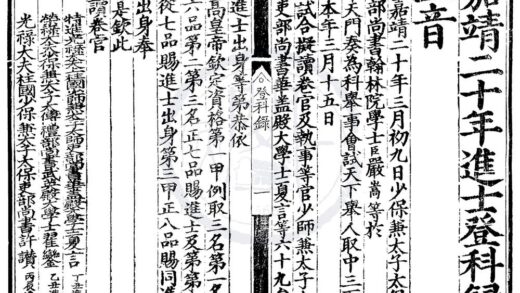 嘉靖二十年進士登科錄
玉音
嘉靖二十年三月初九日少保兼太子太
部尚書翰林院學士臣嚴嵩等於
天門奏為科舉事會試天下舉人取中三
本年三月十五日
試合擬讀卷官及執事等官少師兼太子太
吏部尚書華蓋殿大學士夏言等六十九
進士出身等第恭依
高皇帝欽定資格第一甲例取三名第一名
六品第二第三名正七品賜進士及第第
從七品賜進士出身第三甲正八品賜同進
出身奉
是欽此
讀卷官
特進光祿大夫上柱國少師兼太子太師吏部尚書華蓋殿大學士夏言 丁丑
榮祿大夫少保兼太子太傅禮部尚書武英殿大學士翟鑾 乙丑
光祿大夫柱國少保兼太子太保吏部尚書許讚 丙辰
登科錄 一